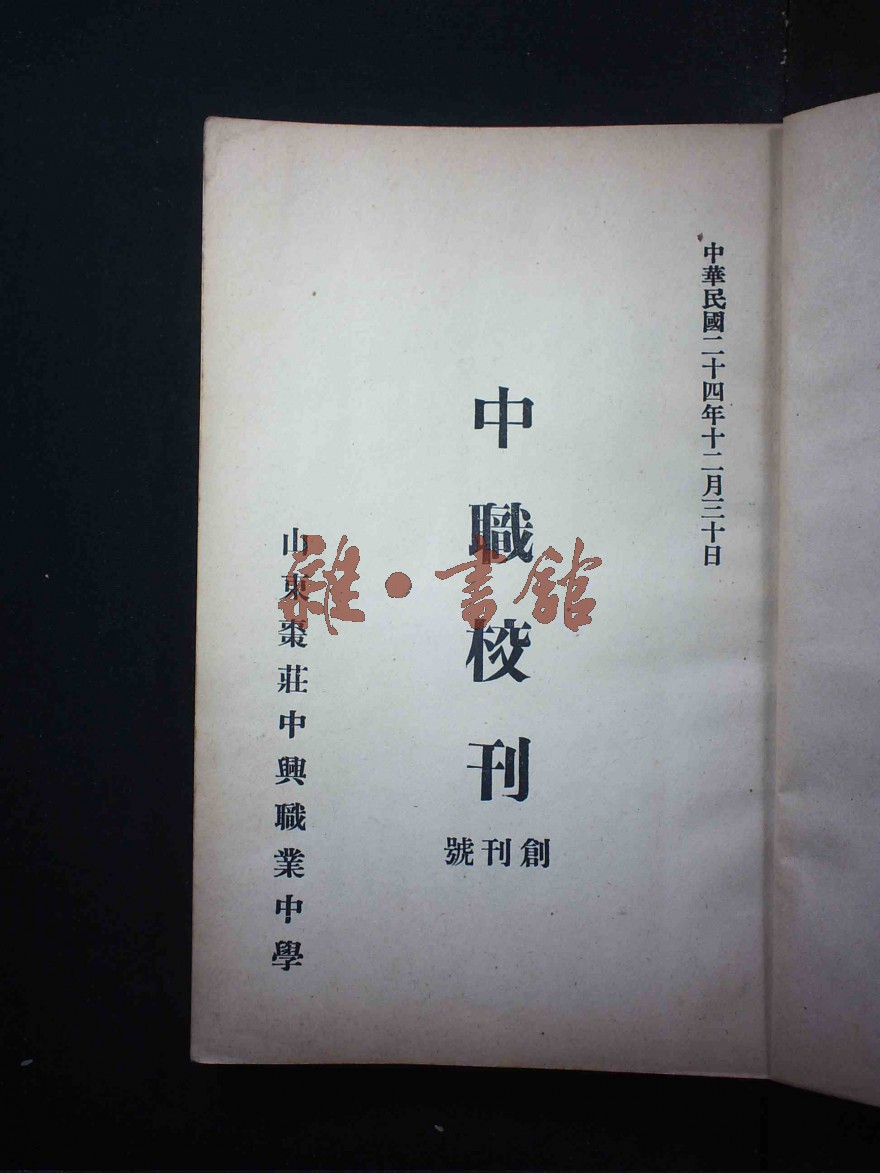 中華民國二十四年十二月三十日
中職校刊
創刊號
山東棗莊中興職業中學
雜·書館